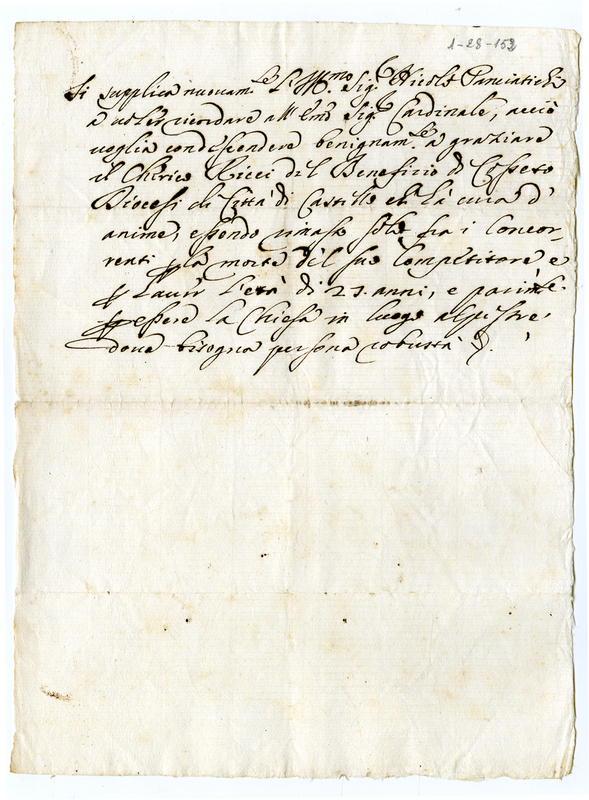 1-28-152
Si supplica nuovam.te l'Ill.mo Sig.r Nicolò Panciatichi
a voler ricordare all'Em.o Sig.r Cardinale, acciò
voglia condespendere benignam.te a graziare
il Chierico Ricci del Benefizio di Cosseto
Diocesi di Città di Castello ch'hà cura d'
anime, essendo rimasto solo fra i Concor-
renti p la morte del suo Competitore e
p l'età di 23. anni, e parim.te
p essere la Chiesa in luogo alpestre,
dove bisogna persona robusta